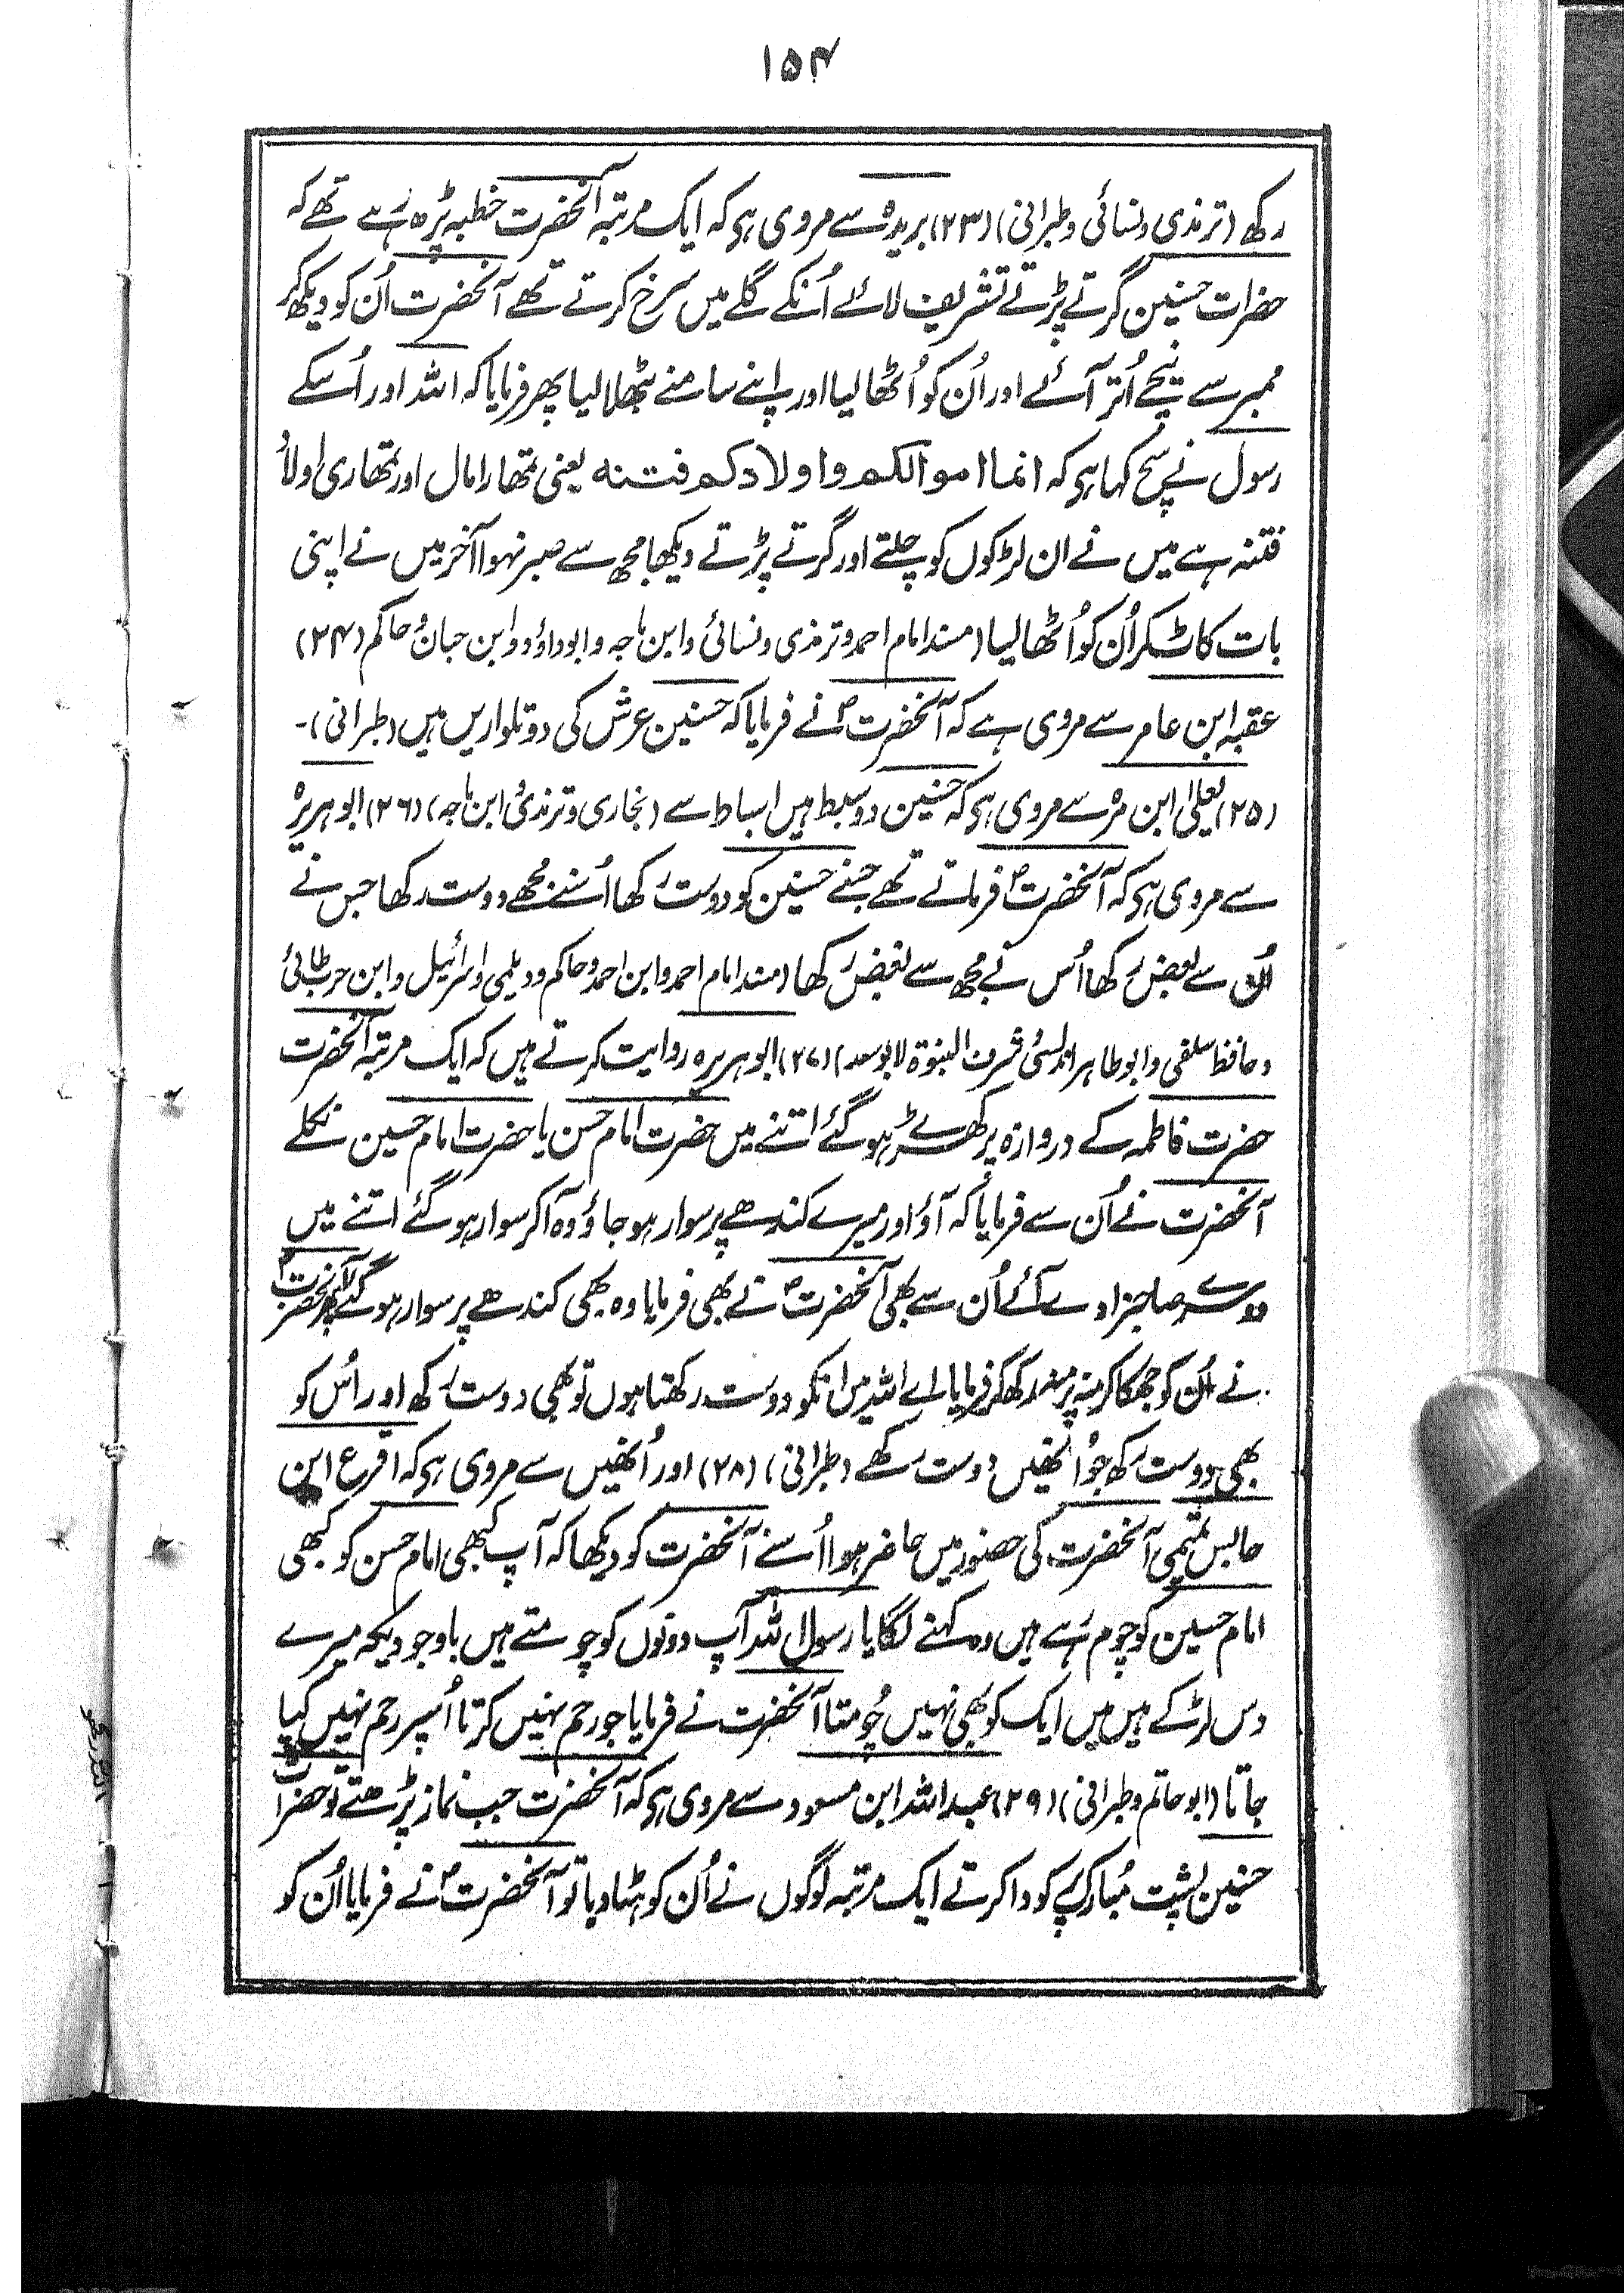 ۱۵۴
رکھ (ترمذی ونسائی وطبرانی) (۲۳) بریدہ سے مروی ہی کہ ایک مرتبہ آنحضرت خطبہ پڑھ رہے تھے کہ
حضرات حسنین گرتے پڑتے تشریف لائے اُنکے گلے میں سرخ کرتے تھے آنحضرت اُن کو دیکھکر
ممبر سے نیچے اُتر آئے اور اُن کو اُٹھا لیا اور اپنے سامنے بٹھلا لیا پھر فرمایا کہ اللہ اور اُسکے
رسول نے سچ کہا ہی کہ انما اموالکم واولادکم فتنہ یعنی تمھارا مال اور تمھاری اولاد
فتنہ ہے میں نے ان لڑکوں کو چلتے اور گرتے پڑتے دیکھا مجھ سے صبر نہوا آخر میں نے اپنی
بات کاٹکر اُن کو اُٹھا لیا (مسند امام احمد وترمذی ونسائی وابن ماجہ وابوداؤد وابن حبان وحاکم (۲۴)
عقبہ ابن عامر سے مروی ہے کہ آنحضرت ؐ نے فرمایا کہ حسنین عرش کی دو تلواریں ہیں (طبرانی)۔
(۲۵) یعلیٰ ابن مرہ سے مروی ہی کہ حسنین دو سبط ہیں اسباط سے (بخاری وترمذی ابن ماجہ) (۲۶) ابوہریرہ
سے مروی ہی کہ آنحضرت ؐ فرماتے تھے جسنے حسنین کو دوست رکھا اُسنے مجھے دوست رکھا جس نے
اُن سے بغض رکھا اُس نے مجھ سے بغض رکھا (مسند امام احمد وابن احمد وحاکم ودیلمی واسرائیل وابن حرب طائی
وحافظ سلفی وابوطاہر اندلسی شرف النبوۃ لابوسعد) (۲۷) ابوہریرہ روایت کرتے ہیں کہ ایک مرتبہ آنحضرت
حضرت فاطمہ کے دروازہ پر کھڑے ہو گئے اتنے میں حضرت امام حسن یا حضرت امام حسین نکلے
آنحضرت نے اُن سے فرمایا کہ آؤ اور میرے کندھے پر سوار ہو جاؤ وہ آکر سوار ہو گئے اتنے میں
دوسرے صاحبزادے آئے اُن سے بھی آنحضرت ؐ نے بھی فرمایا وہ بھی کندھے پر سوار ہو گئے پھر آنحضرت ؐ
نے اُن کو جھکا کر منہ پر منہ رکھکر فرمایا اے اللہ میں انکو دوست رکھتا ہوں تو بھی دوست رکھ اور اُس کو
بھی دوست رکھ جو اُنھیں دوست رکھے (طبرانی) (۲۸) اور اُنھیں سے مروی ہی کہ اقرع ابن
حابس تمیمی آنحضرت کی حضور میں حاضر ہوا اُسنے آنحضرت کو دیکھا کہ آپ کبھی امام حسن کو کبھی
امام حسین کو چوم رہے ہیں وہ کہنے لگا یا رسول اللہ آپ دونوں کو چومتے ہیں باوجودیکہ میرے
دس لڑکے ہیں میں ایک کو بھی نہیں چُومتا آنحضرت نے فرمایا جو رحم نہیں کرتا اُسپر رحم نہیں کیا
جاتا (ابوحاتم وطبرانی) (۲۹) عبداللہ ابن مسعود سے مروی ہی کہ آنحضرت جب نماز پڑھتے تو حضرات
حسنین پشت مُبارک پر کودا کرتے ایک مرتبہ لوگوں نے اُن کو ہٹا دیا تو آنحضرت ؐ نے فرمایا اُن کو